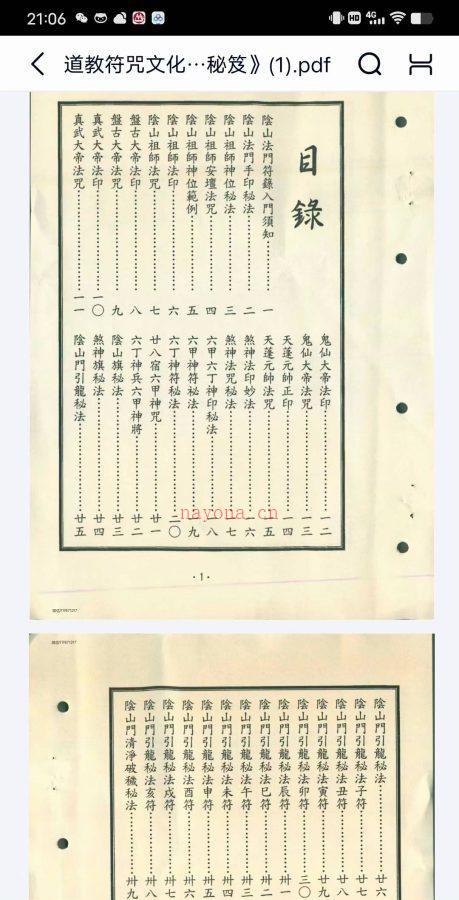 21:06
4G
道教符咒文化…秘笈》(1).pdf
目錄
陰山法門符籙入門須知……一
陰山法門手印秘法……二
陰山祖師神位秘法……三
陰山祖師安壇法咒……四
陰山祖師神位範例……五
陰山祖師法印……六
陰山祖師法咒……七
盤古大帝法印……八
盤古大帝法咒……九
真武大帝法印……一〇
真武大帝法咒……一一
鬼仙大帝法印……一二
鬼仙大帝法咒……一三
天蓬元帥正印……一四
天蓬元帥法咒……一五
煞神法印妙法……一六
煞神法咒秘法……一七
六甲六丁神印秘法……一八
六甲神符秘法……一九
六丁神符秘法……二〇
廿八宿六甲神咒……廿一
六丁神兵六甲神將……廿二
陰山旗秘法……廿三
煞神旗秘法……廿四
陰山門引龍秘法……廿五
nayona.cn
·1·
陰山門引龍秘法……廿六
陰山門引龍秘法子符……廿七
陰山門引龍秘法丑符……廿八
陰山門引龍秘法寅符……廿九
陰山門引龍秘法卯符……三〇
陰山門引龍秘法辰符……卅一
陰山門引龍秘法巳符……卅二
陰山門引龍秘法午符……卅三
陰山門引龍秘法未符……卅四
陰山門引龍秘法申符……卅五
陰山門引龍秘法酉符……卅六
陰山門引龍秘法戌符……卅七
陰山門引龍秘法亥符……卅八
陰山門清淨破穢秘法……卅九